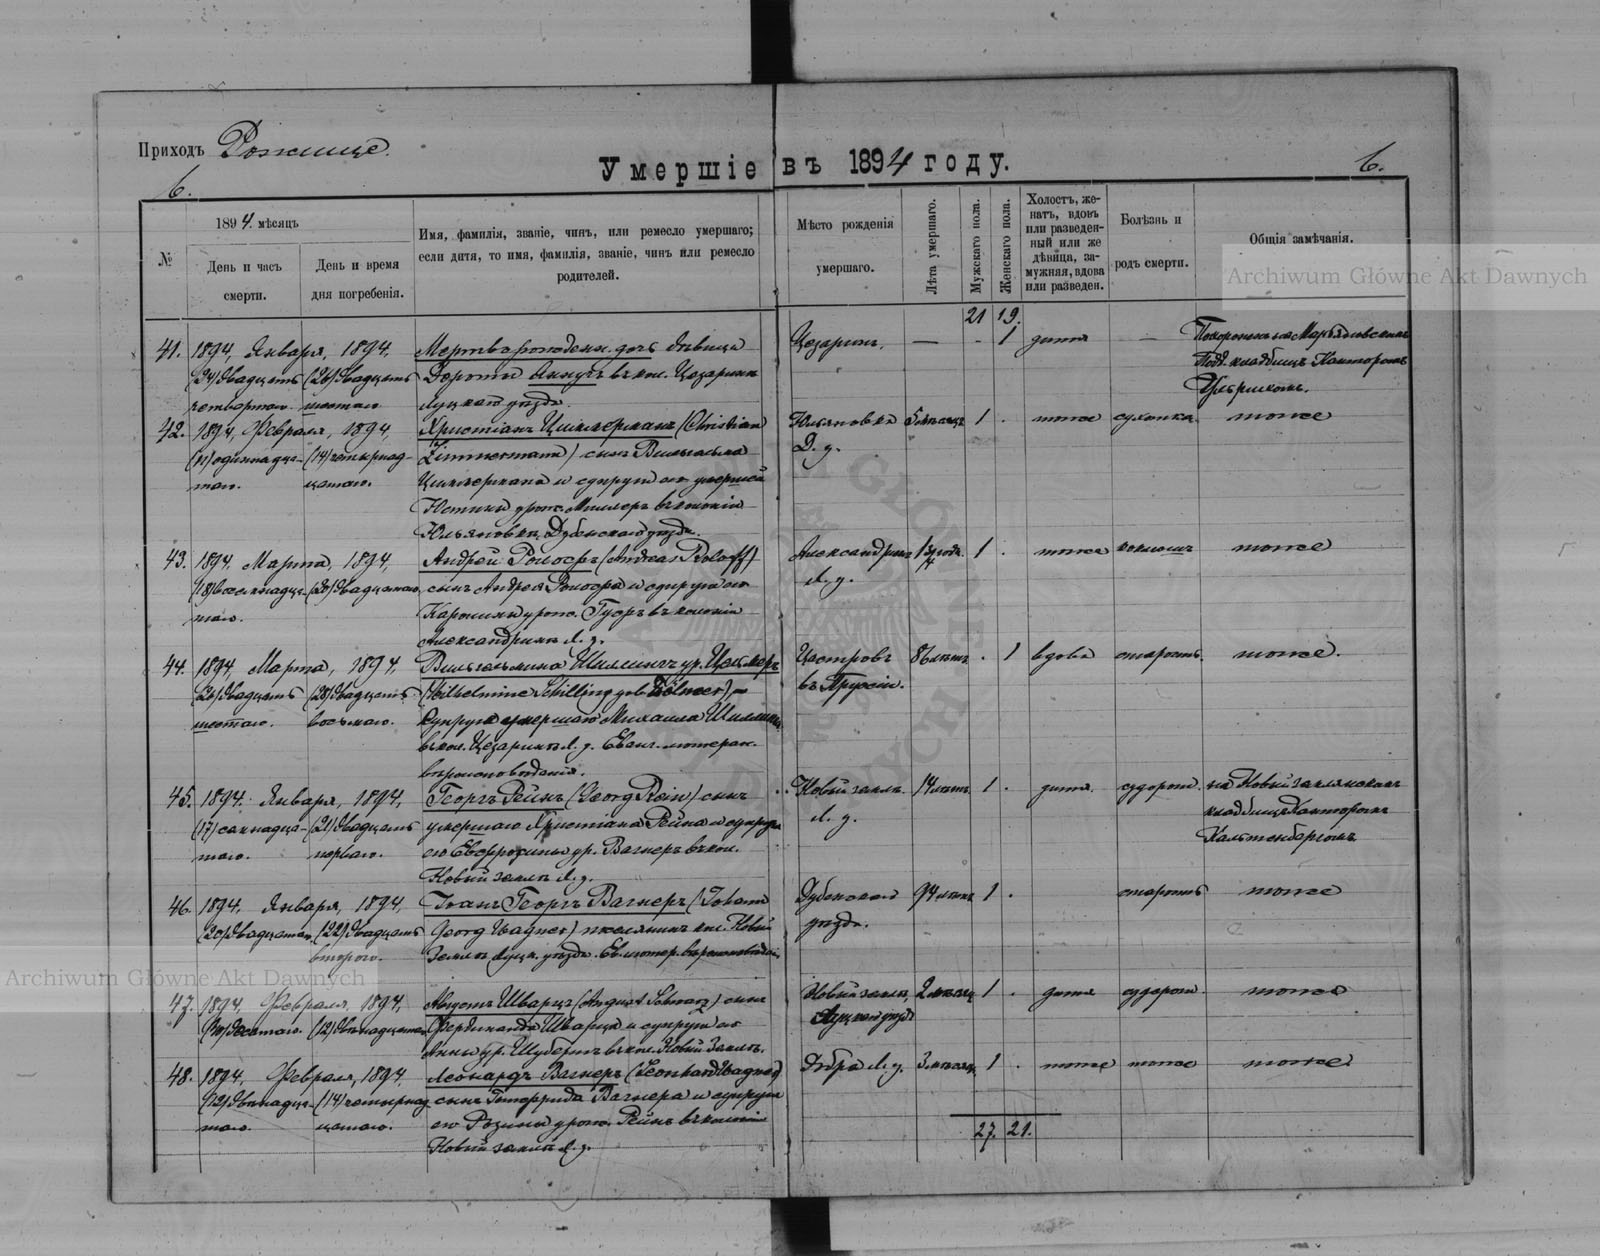 Приходъ Рожище.
Умершіе въ 1894 году.
6.
6.
№
1894 мѣсяцъ
День и часъ смерти.
День и время дня погребенія.
Имя, фамилія, званіе, чинъ, или ремесло умершаго;
если дитя, то имя, фамилія, званіе, чинъ или ремесло
родителей.
Мѣсто рожденія
умершаго.
Лѣта умершаго.
Мужскаго пола.
Женскаго пола.
Холостъ, же-
натъ, вдовъ
или разведен-
ный или же
дѣвица, за-
мужняя, вдова
или разведен.
Болѣзнь и
родъ смерти.
Общія замѣчанія.
Archiwum Główne Akt Dawnych
21 19.
41. 1894, Января, 1894, Мертворожденн. дочь дѣвицы Цезаринъ. — - 1 дитя —
(24) двадцать (26) двадцать Доротеи въ кол. Цезаринъ
четвертаго шестаго Луцкаго уѣзда.
42. 1894, Февраля, 1894, Христіанъ Циммерманъ (Christian Юльяновка 5 мѣсяцъ 1 . тоже сухотка тоже
(11) одиннадца- (14) четырнад- Zimmermann) сынъ Вильгельма Д. у.
таго. цатаго. Циммермана и супруги его умершей
Юстины урожд. Миллеръ въ колоніи
Юльяновка, Дубенскаго уѣзда.
43. 1894, Марта, 1894, Андрей Ролофъ (Andreas Roloff) Александринъ 1 3/4 года. 1 . тоже коклюшъ тоже
(18) восемнадца- (20) двадцатаго. сынъ Андрея Ролофа и супруги его Л. у.
таго. Каролины урожд. въ колоніи
Александринъ Л. у.
44. 1894, Марта, 1894, Вильгельмина Шиллингъ ур. Цастровъ 86 лѣтъ . 1 вдова старость. тоже.
(26) двадцать (28) двадцать (Wilhelmine Schilling geb. въ Пруссіи.
шестаго. восьмаго. Супруга умершаго Михаила Шиллинга
въ кол. Цезаринъ Л. у. Еванг.-лютеран.
вѣроисповѣданія.
45. 1894. Января, 1894, Георгъ Рейнъ (Georg Rein) сынъ Новый земль. 14 лѣтъ 1 . дитя. судороги. на
(17) семнадца- (21) двадцать умершаго Христіана Рейна и супруги Л. у. кладбищѣ Канторомъ
таго. перваго. его Евфросины ур. Вагнеръ въ кол. Кальтенбергомъ
Новый земль Л. у.
46. 1894, Января, 1894, Іоанъ Георгъ Вагнеръ (Johann Дубенскаго 94 лѣтъ 1 . старость тоже
(20) двадцатаго (22) двадцать Georg Wagner) поселянинъ кол. Новый уѣзда.
втораго. Земль Луцк. уѣзда. Ев. лютер. вѣроисповѣданія.
Archiwum Główne Akt Dawnych
47. 1894. Февраля, 1894, Августъ Шварцъ (August Schwarz) сынъ Новый земль, 2 мѣсяц. 1 . дитя судороги. тоже
(10) десятаго. (12) двѣнадцатаго Фердинанда Шварца и супруги его Луцкаго уѣзда
Анны ур. Шубертъ въ кол. Новый Земль.
48. 1894, Февраля, 1894, Леонардъ Вагнеръ (Leonhard Wagner) Добра Л. у. 3 мѣсяц. 1 . тоже тоже тоже.
(12) двѣнадца- (14) четырнад- сынъ Готфрида Вагнера и супруги
таго. цатаго. его Розины урожд. Рейнъ въ колоніи
Новый земль Л. у.
27. 21.